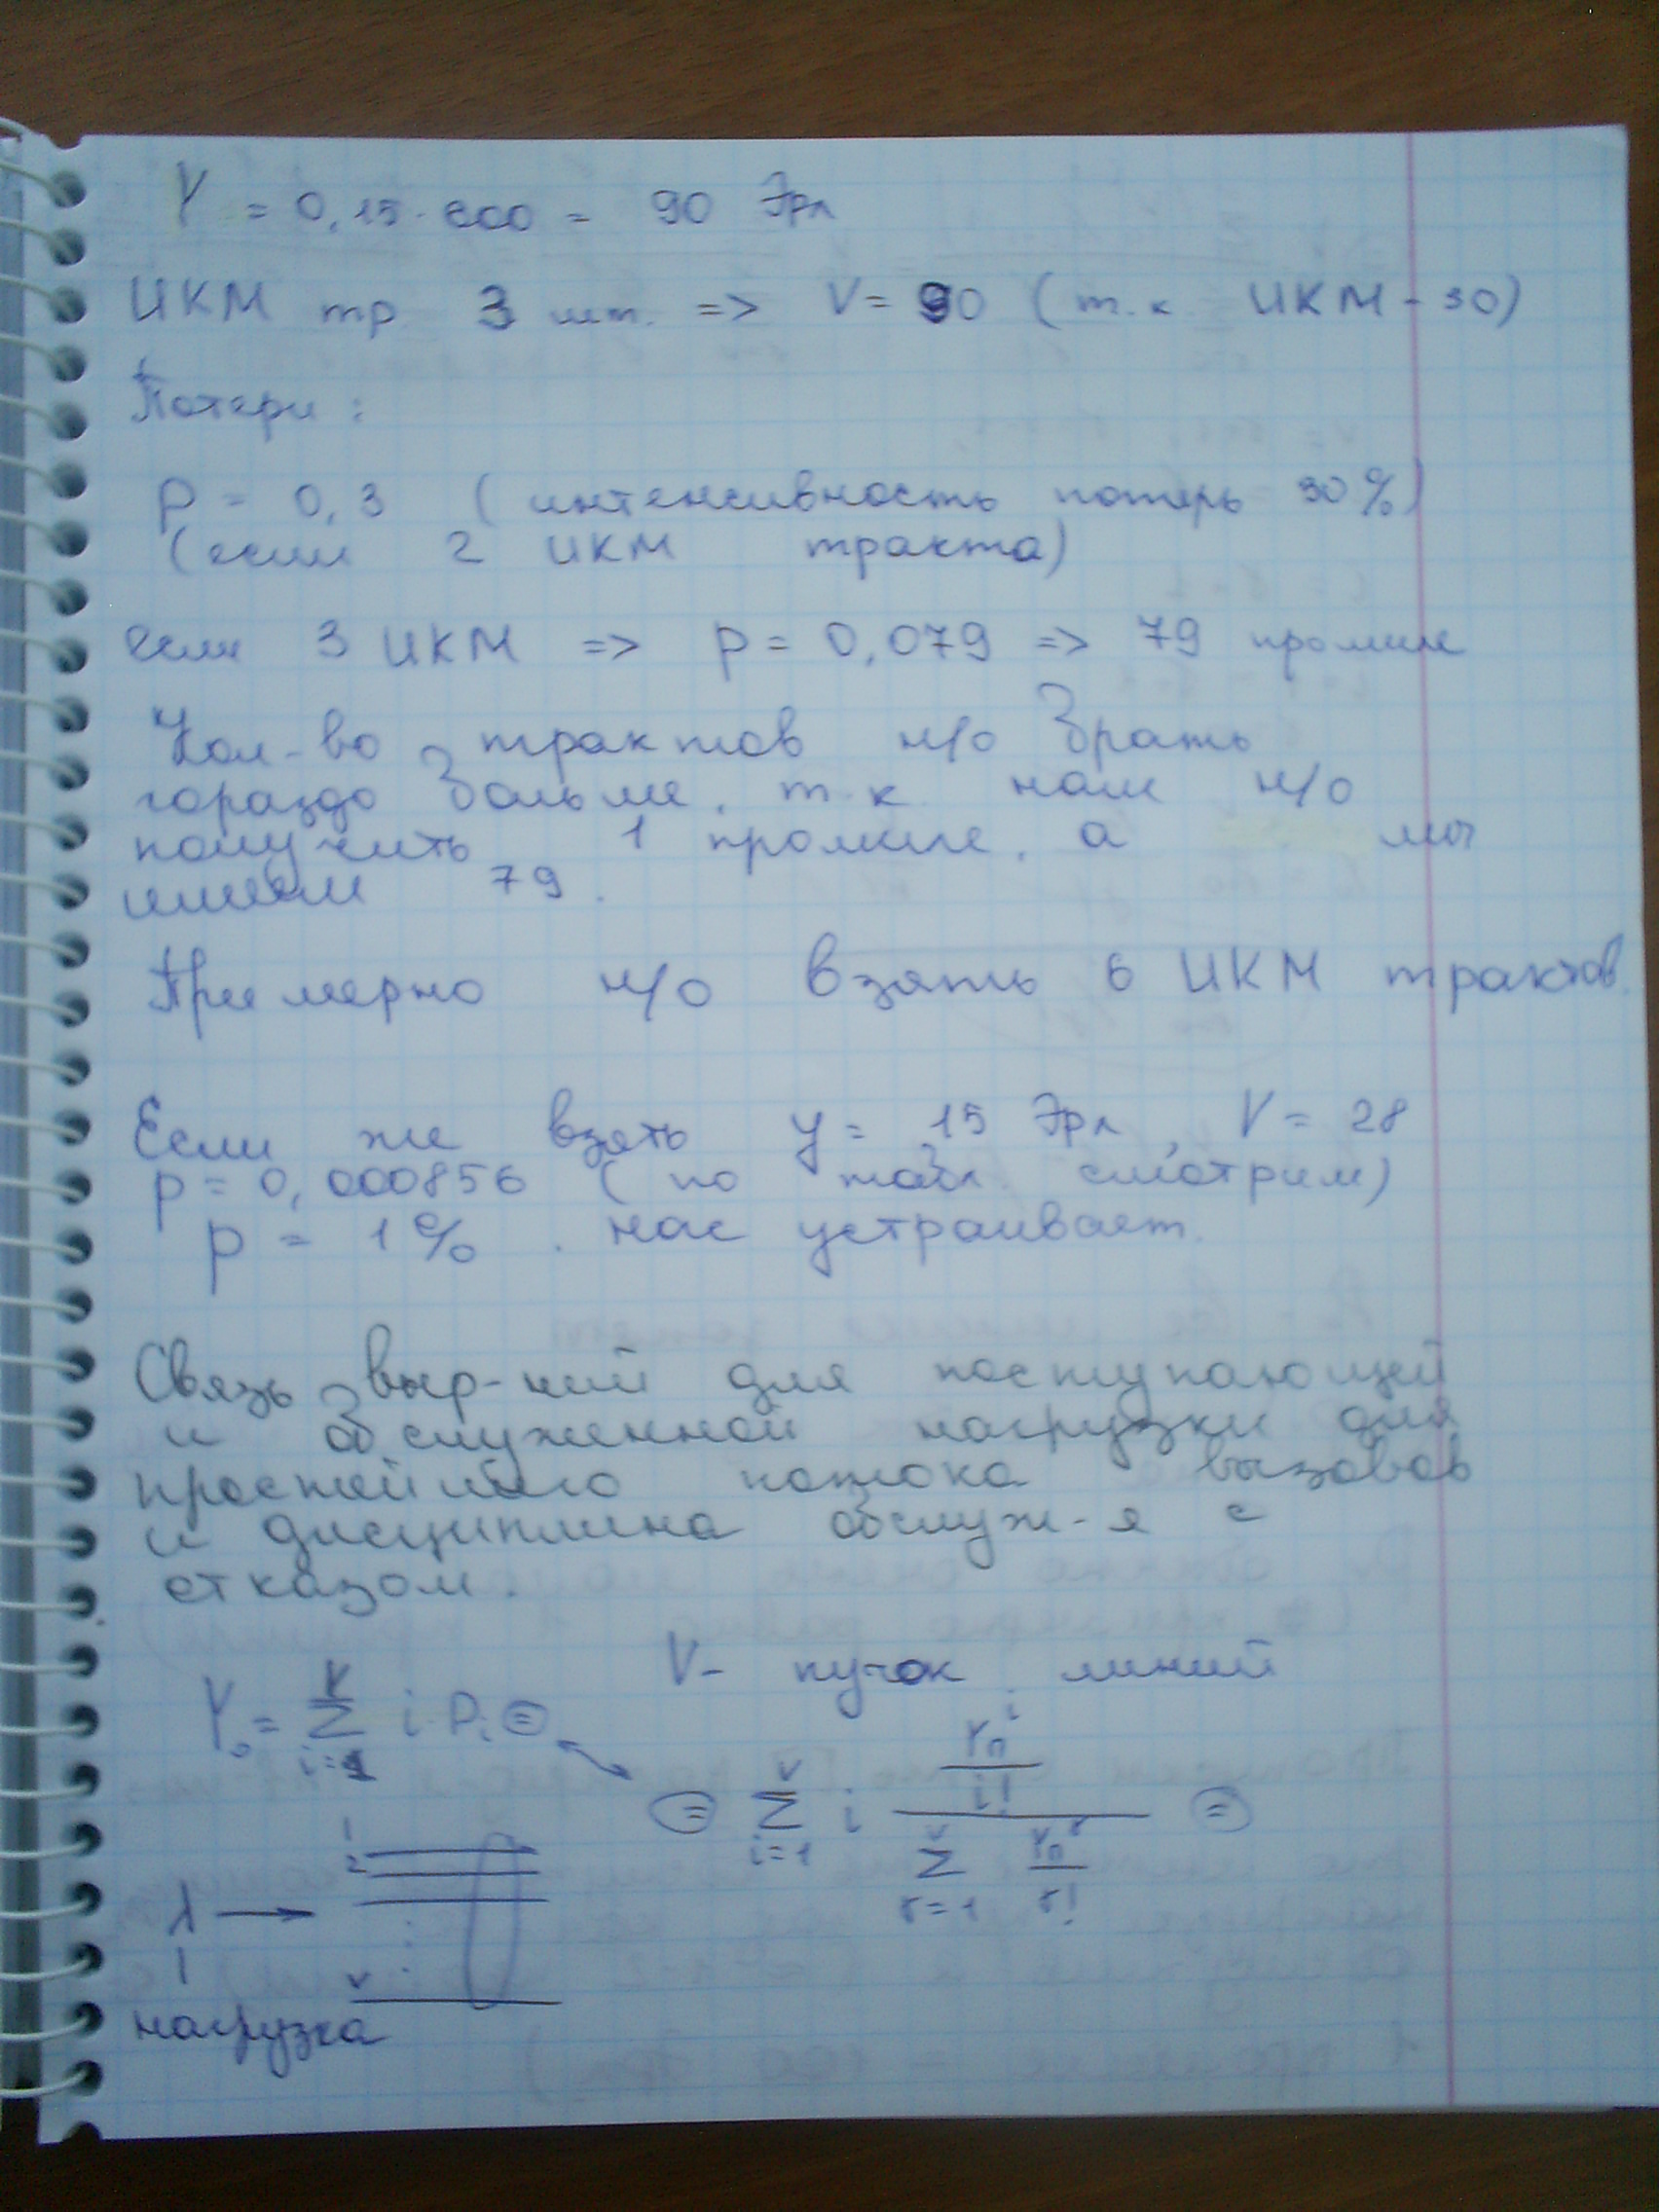 Y = 0,15 · 600 = 90 Эрл
ИКМ тр 3 шт. => V = 90 (т.к. ИКМ-30)
Потери:
P = 0,3 (интенсивность потерь 30%)
(если 2 ИКМ тракта)
если 3 ИКМ => p = 0,079 => 79 промиле
Кол-во трактов н/о брать
гораздо больше, т.к. нам н/о
получить 1 промиле, а мы
имеем 79.
Примерно н/о взять 6 ИКМ трактов.
Если же взять y = 15 Эрл, V = 28
p = 0,000856 (по табл. смотрим)
p = 1% . нас устраивает.
Связь выр-ний для поступающей
и обслуженной нагрузки для
простейшего потока вызовов
и дисциплина обслуж-я с
отказом.
V - пучок линий
Y₀ = ∑_{i=1}^{V} i · P_i ⊜
⊜ ∑_{i=1}^{V} i \frac{\frac{Y_п^i}{i!}}{∑_{r=1}^{V} \frac{Y_п^r}{r!}} ⊜
1
2
λ →
v
нагрузка